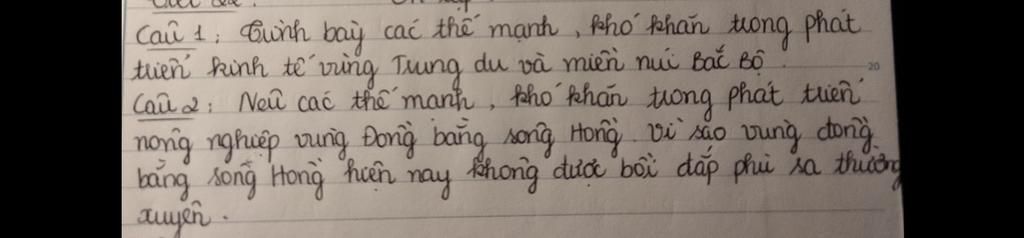 Câu 1: Trình bày các thế mạnh, khó khăn trong phát
triển kinh tế vùng Trung du và miền núi Bắc Bộ.
Câu 2: Nêu các thế mạnh, khó khăn trong phát triển
nông nghiệp vùng Đồng bằng sông Hồng. Vì sao vùng đồng
bằng sông Hồng hiện nay không được bồi đắp phù sa thường
xuyên.
20